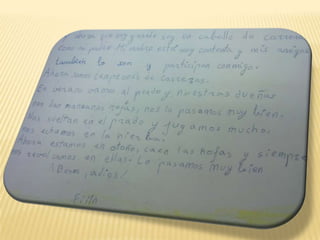 ahora que soy grande soy un caballo de carreras
como mi padre. Mi madre está muy contenta y mis amigos
también lo son y participan conmigo.
Ahora somos campeones de carreras.
En verano vamos al prado y nuestros dueños
nos dan manzanas rojas, nos lo pasamos muy bien.
Nos sueltan en el prado y jugamos mucho,
nos echamos en la hierba.
Ahora estamos en otoño, caen las hojas y siempre
nos revolcamos en ellas. Lo pasamos muy bien
¡Besos, adios!
FIN